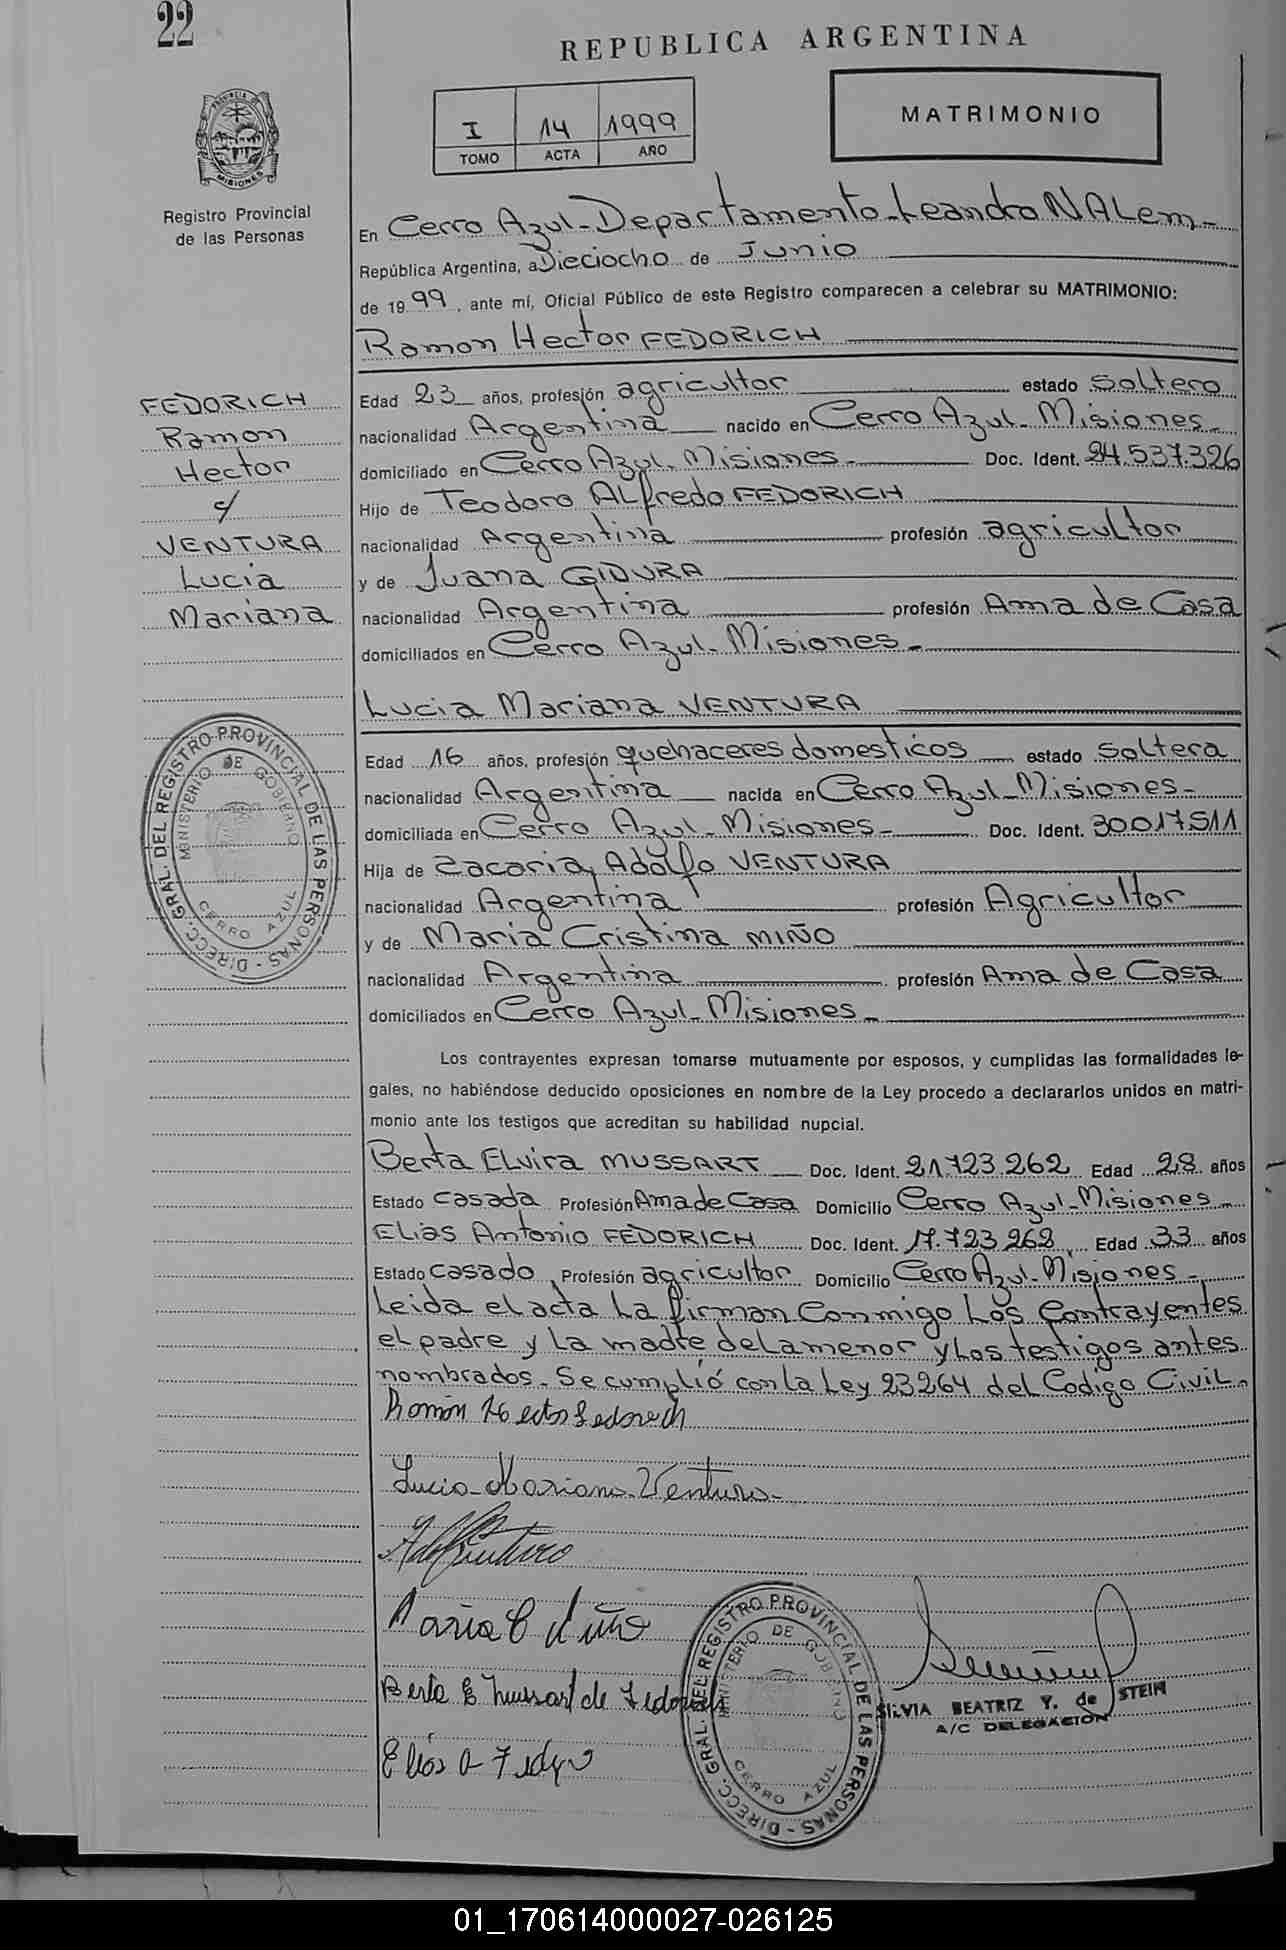 22
REPUBLICA ARGENTINA
I 14 1999
TOMO ACTA AÑO
MATRIMONIO
PROVINCIA DE
MISIONES
Registro Provincial
de las Personas
En Cerro Azul - Departamento - Leandro N ALem -
República Argentina, a Dieciocho de Junio
de 1999, ante mí, Oficial Público de este Registro comparecen a celebrar su MATRIMONIO:
Ramon Hector FEDORICH
FEDORICH
Ramon
Hector
c/
VENTURA
Lucia
Mariana
Edad 23 años, profesión agricultor estado soltero
nacionalidad Argentina nacido en Cerro Azul - Misiones -
domiciliado en Cerro Azul - Misiones - Doc. Ident. 24.537.326
Hijo de Teodoro ALfredo FEDORICH
nacionalidad Argentina profesión agricultor
y de Juana GIDURA
nacionalidad Argentina profesión Ama de Casa
domiciliados en Cerro Azul - Misiones -
Lucia Mariana VENTURA
Edad 16 años, profesión quehaceres domesticos estado soltera
nacionalidad Argentina nacida en Cerro Azul - Misiones -
domiciliada en Cerro Azul - Misiones - Doc. Ident. 30017511
Hija de Zacaria, Adolfo VENTURA
nacionalidad Argentina profesión Agricultor
y de Maria Cristina MIÑO
nacionalidad Argentina profesión Ama de Casa
domiciliados en Cerro Azul - Misiones -
DIRECC. GRAL. DEL REGISTRO PROVINCIAL DE LAS PERSONAS -
MINISTERIO DE GOBIERNO
CERRO AZUL
Los contrayentes expresan tomarse mutuamente por esposos, y cumplidas las formalidades le-
gales, no habiéndose deducido oposiciones en nombre de la Ley procedo a declararlos unidos en matri-
monio ante los testigos que acreditan su habilidad nupcial.
Berta ELvira MUSSART Doc. Ident. 21.723.262 Edad 28 años
Estado casada Profesión Ama de Casa Domicilio Cerro Azul - Misiones -
ELias Antonio FEDORICH Doc. Ident. 17.723.262, Edad 33 años
Estado casado, Profesión agricultor Domicilio Cerro Azul - Misiones -
Leida el acta La firman conmigo Los contrayentes
el padre y La madre de La menor y Los testigos antes
nombrados - Se cumplió con la Ley 23264 del Codigo CiviL -
Ramón Hector Fedorich
Lucia - Mariana - Ventura -
Maria C Miño
Berta E Mussart de Fedorich
Elias A
DIRECC. GRAL. DEL REGISTRO PROVINCIAL DE LAS PERSONAS -
MINISTERIO DE GOBIERNO
CERRO AZUL
SILVIA BEATRIZ Y. de STEIN
A/C DELEGACION
01_170614000027-026125